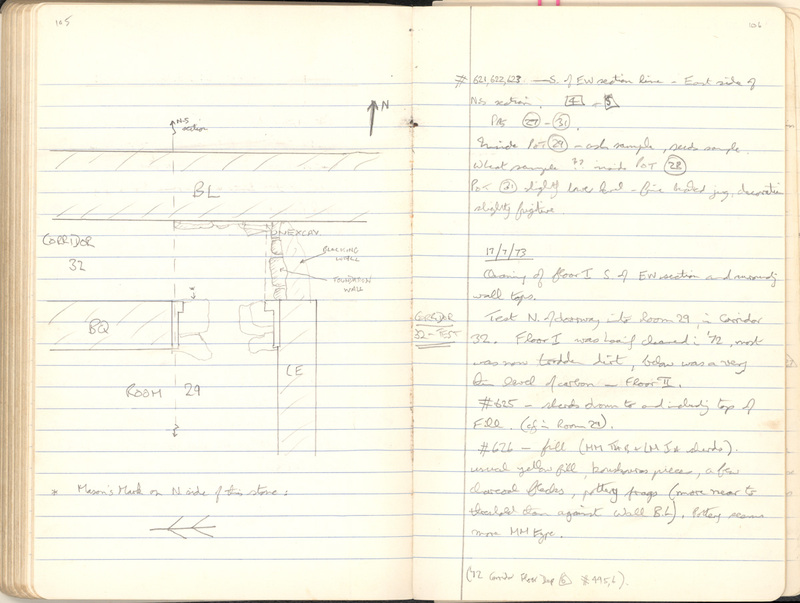 105
N-S
section
N
BL
UNEXCAV.
CORRIDOR
32
BLOCKING
WALL
FOUNDATION
WALL
BQ
CE
ROOM 29
* Mason's Mark on N side of this stone:
106
# 621,622,623 — S. of EW section line - East side of
NS section.
Pots 27 - 31
Inside POT 29 - ash sample, seeds sample.
Wheat sample ?? inside POT 28
POT 31 slightly lower level - fine beaked jug, decoration
slightly fugitive.
17/7/73
Cleaning of floor I S. of EW section and
wall tops.
CORRIDOR
32 - TEST
Test N. of doorway into Room 29, in Corridor
32. Floor I was half cleaned in '72, most
was now trodden dirt, below was a very
level of carbon - Floor II.
#625 - sherds down to and including top of
Fill. (cf. in Room 29).
#626 - fill (MM sherds).
usual yellow fill, pieces, a few
charcoal flecks, pottery frags (more near to
threshold than against Wall BL). Pottery seems
more MM type.
('72 Corridor Floor Dep # 495,6).